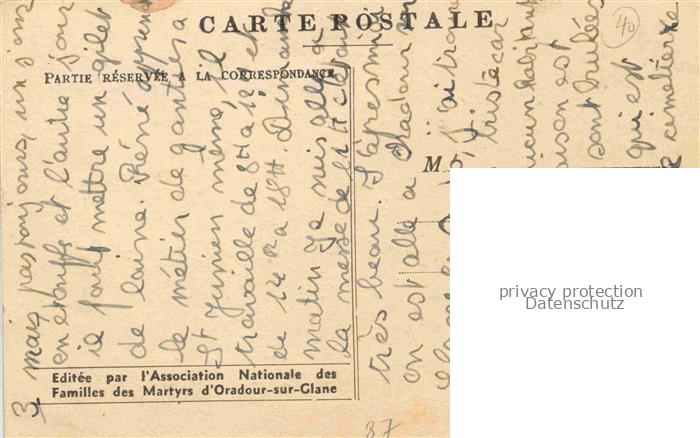 CARTE POSTALE
PARTIE RÉSERVÉE A LA CORRESPONDANCE
40
M
3
mais pas toujours, un jour
on étouffe et l'autre jour
il faut mettre un gilet
de laine. René apprend
le métier de gantier a
St Junien même, il
travaille de 8H a 12H et
de 14H a 18H. Dimanche
matin je suis allé a
la messe de 11H c'était
très beau. L'après midi
on est allé a Oradour
j'ai trouvé
triste car
aucun habitant
maison est
sont brulées
qui est
cimetière
Editée par l'Association Nationale des
Familles des Martyrs d'Oradour-sur-Glane
87
privacy protection
Datenschutz